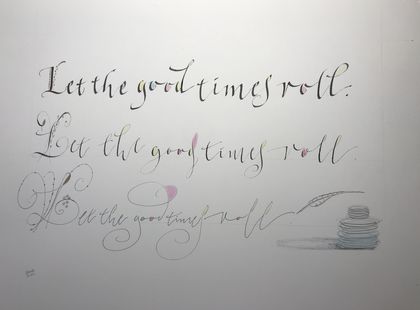 Let the good times roll.
Let the good times roll.
Let the good times roll